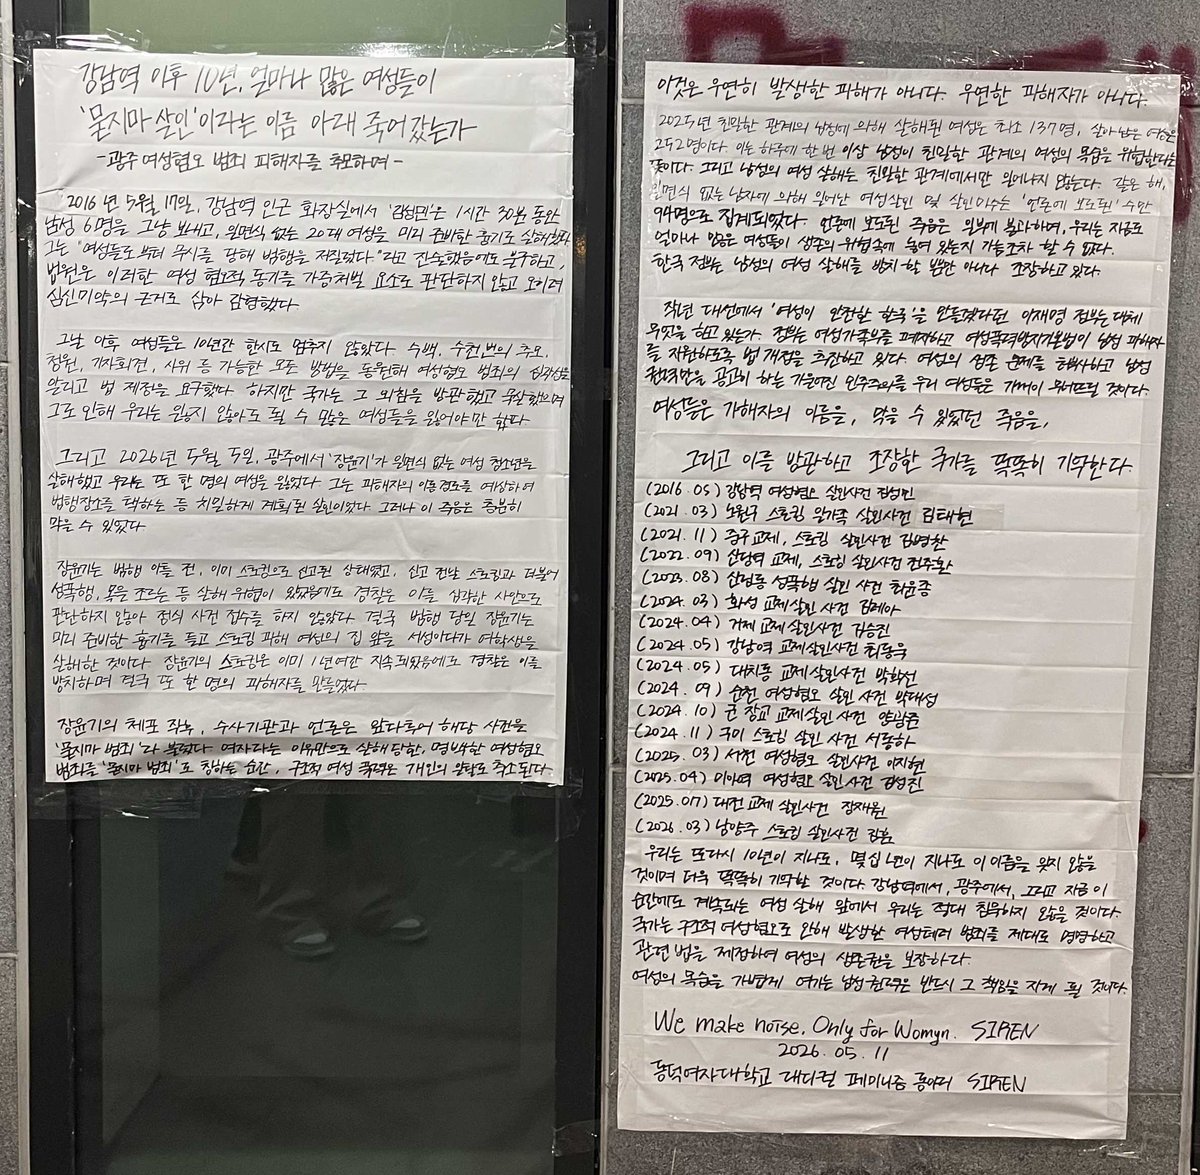 강남역 이후 10년, 얼마나 많은 여성들이
'묻지마 살인'이라는 이름 아래 죽어갔는가
- 광주 여성혐오 범죄 피해자를 추모하며 -
2016년 5월 17일, 강남역 인근 화장실에서 '김성민'은 1시간 30분 동안
남성 6명을 그냥 보내고, 일면식 없는 20대 여성을 미리 준비한 흉기로 살해했다.
그는 "여성들로부터 무시를 당해 범행을 저질렀다"라고 진술했음에도 불구하고,
법원은 이러한 여성 혐오적 동기를 가중처벌 요소로 판단하지 않고 오히려
심신미약의 근거로 삼아 감형했다.
그날 이후 여성들은 10년간 한시도 멈추지 않았다. 수백, 수천번의 추모,
청원, 기자회견, 시위 등 가능한 모든 방법을 동원해 여성혐오 범죄의 심각성을
알리고 법 제정을 요구했다. 하지만 국가는 그 외침을 방관했고 묵살했으며
그로 인해 우리는 잃지 않아도 될 수 많은 여성들을 잃어야만 했다.
그리고 2026년 5월 5일, 광주에서 '장윤기'가 일면식 없는 여성 청소년을
살해했고 우리는 또 한 명의 여성을 잃었다. 그는 피해자의 이동경로를 예상하여
범행장소를 택하는 등 치밀하게 계획된 살인이었다. 그러나 이 죽음은 충분히
막을 수 있었다.
장윤기는 범행 이틀 전, 이미 스토킹으로 신고된 상태였고, 신고 전날 스토킹과 더불어
성폭행, 목을 조르는 등 살해 위협이 있었음에도 경찰은 이를 심각한 사안으로
판단하지 않아 정식 사건 접수를 하지 않았다. 결국 범행 당일 장윤기는
미리 준비한 흉기를 들고 스토킹 피해 여성의 집 앞을 서성이다가 여학생을
살해한 것이다. 장윤기의 스토킹은 이미 1년여간 지속되었음에도 경찰은 이를
방치하며 결국 또 한 명의 피해자를 만들었다.
장윤기의 체포 직후, 수사기관과 언론은 앞다투어 해당 사건을
'묻지마 범죄'라 불렀다. 여자라는 이유만으로 살해 당한, 명백한 여성혐오
범죄를 '묻지마 범죄'로 칭하는 순간, 구조적 여성 폭력은 개인의 일탈로 축소된다.
이것은 우연히 발생한 피해가 아니다. 우연한 피해자가 아니다.
2025년 친밀한 관계의 남성에 의해 살해된 여성은 최소 137명, 살아남은 여성은
252명이다. 이는 하루에 한 번 이상 남성이 친밀한 관계의 여성의 목숨을 위협한다는
뜻이다. 그리고 남성의 여성 살해는 친밀한 관계에서만 일어나지 않는다. 같은 해,
일면식 없는 남자에 의해 일어난 여성살인 및 살인미수는 '언론에 보도된' 수만
94명으로 집계되었다. 언론에 보도된 죽음은 일부에 불과하며, 우리는 지금도
얼마나 많은 여성들이 생존의 위협속에 놓여 있는지 가늠조차 할 수 없다.
한국 정부는 남성의 여성 살해를 방치할 뿐만 아니라 조장하고 있다.
작년 대선에서 '여성이 안전한 한국'을 만들겠다던 이재명 정부는 대체
무엇을 하고 있는가. 정부는 여성가족부를 폐지하고 여성폭력방지기본법이 남성 피해자
를 지원하도록 법 개정을 추진하고 있다. 여성의 생존 문제를 하고 남성
권력만을 공고히 하는 기울어진 민주주의를 우리 여성들은 기꺼이 무너뜨릴 것이다.
여성들은 가해자의 이름을, 막을 수 있었던 죽음을,
그리고 이를 방관하고 조장한 국가를 똑똑히 기억한다.
(2016.05) 강남역 여성혐오 살인사건 김성민
(2021.03) 노원구 스토킹 일가족 살인사건 김태현
(2021.11) 중구 교제, 스토킹 살인사건 김병찬
(2022.09) 신당역 교제, 스토킹 살인사건 전주환
(2023.08) 신림동 성폭행 살인 사건 최윤종
(2024.03) 화성 교제살인 사건 김레아
(2024.04) 거제 교제살인사건 김승진
(2024.05) 강남역 교제살인사건 최동욱
(2024.05) 대치동 교제살인사건 박학선
(2024.09) 순천 여성혐오 살인 사건 박대성
(2024.10) 군 장교 교제살인 사건 양광준
(2024.11) 구미 스토킹 살인 사건 서동하
(2025.03) 서천 여성혐오 살인사건 이지현
(2025.04) 미아역 여성혐오 살인사건 김성진
(2025.07) 대전 교제 살인사건 장재원
(2026.03) 남양주 스토킹 살인사건 김훈
우리는 또다시 10년이 지나도, 몇십 년이 지나도 이 이름을 잊지 않을
것이며 더욱 똑똑히 기억할 것이다. 강남역에서, 광주에서, 그리고 지금 이
순간에도 계속되는 여성 살해 앞에서 우리는 절대 침묵하지 않을 것이다.
국가는 구조적 여성혐오로 인해 발생한 여성테러 범죄를 제대로 명명하고
관련 법을 제정하여 여성의 생존권을 보장하라.
여성의 목숨을 가볍게 여기는 남성권력은 반드시 그 책임을 지게 될 것이다.
We make noise, Only for Womyn. SIREN
2026.05.11
동덕여자대학교 래디컬 페미니즘 동아리 SIREN